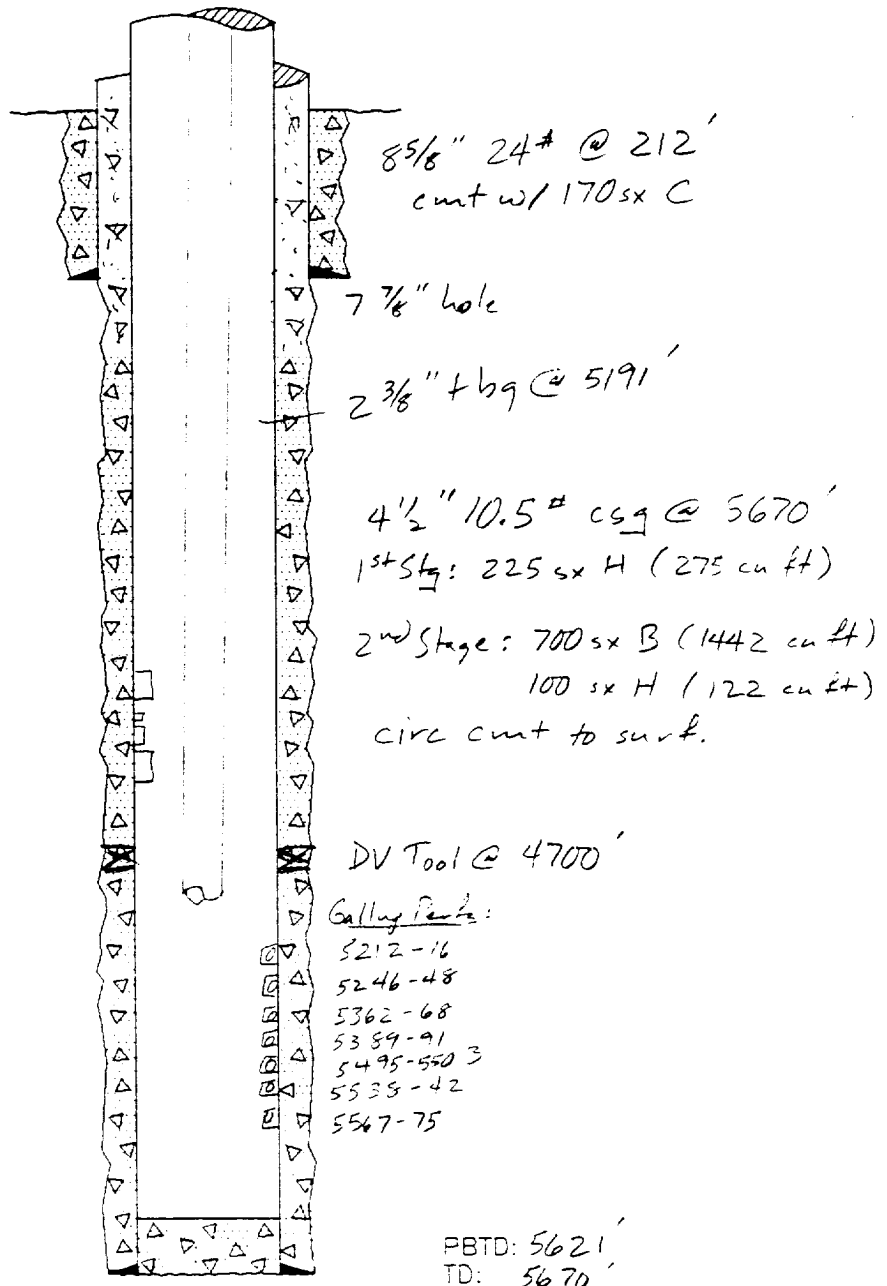 8 5/8" 24# @ 212'
cmt w/ 170 sx C
7 7/8" hole
2 3/8" tbg @ 5191'
4 1/2" 10.5# csg @ 5670'
1st Stg: 225 sx H (275 cu ft)
2nd Stage: 700 sx B (1442 cu ft)
100 sx H (122 cu ft)
circ cmt to surf.
DV Tool @ 4700'
Gallup Perfs:
5212-16
5246-48
5362-68
5389-91
5495-5503
5538-42
5567-75
PBTD: 5621'
TD: 5670'